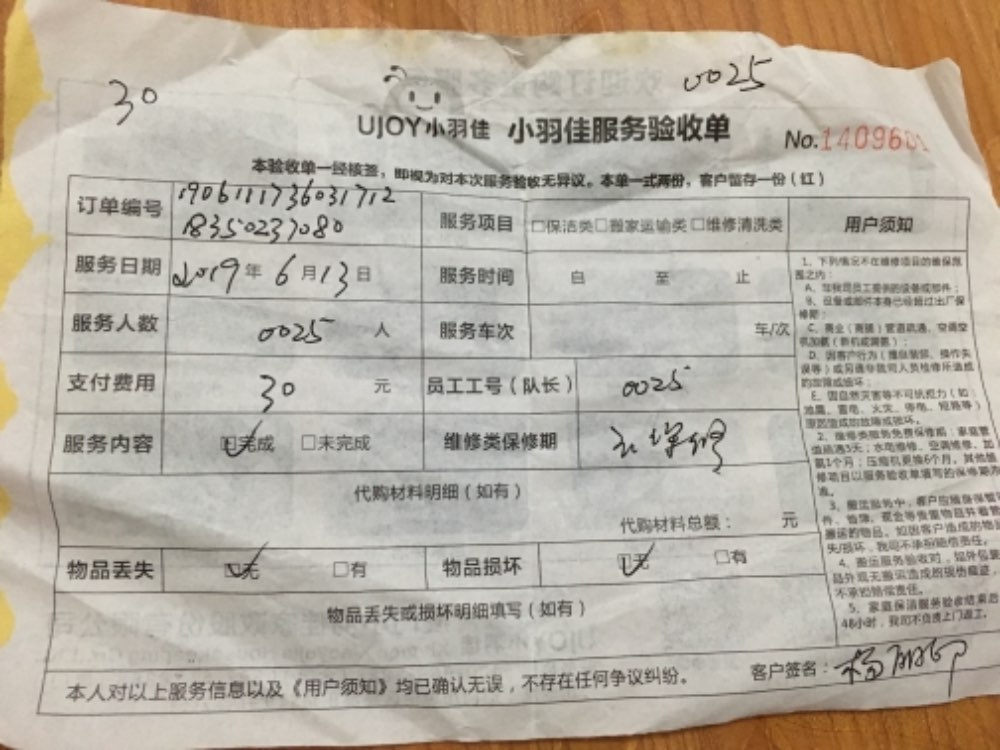 30
0025
UJOY小羽佳 小羽佳服务验收单
No.140960
本验收单一经核签，即视为对本次服务验收无异议。本单一式两份，客户留存一份（红）
订单编号 1906111736031712
18350237080
服务项目 □保洁类□搬家运输类□维修清洗类
用户须知
服务日期 2019年6月13日
服务时间 自 至 止
服务人数 0025 人
服务车次 车/次
支付费用 30 元
员工工号（队长） 0025
服务内容 ☑完成 □未完成
维修类保修期 保修
代购材料明细（如有）
代购材料总额： 元
物品丢失 ☑无 □有
物品损坏 ☑无 □有
物品丢失或损坏明细填写（如有）
1、下列情况不在维修项目的维保范
围之内：
A、非我司员工提供的设备或部件；
B、设备或部件本身已经超过出厂保
修期；
C、商业（商铺）管道疏通、空调空
机加氨（新机或漏氨）；
D、因客户行为（擅自装卸、操作失
误等）或另请非我司人员检修所造成
的故障或损坏；
E、因自然灾害等不可抗拒力（如：
地震、雷电、火灾、停电、短路等）
原因造成的故障或损坏。
2、维修类服务免费保修期：家庭管
道疏通3天；水电维修、空调维修、加
氨1个月；压缩机更换6个月，其他维
修项目以服务验收单填写的保修期为
准。
3、搬运服务中，客户应随身保管
件、首饰、现金等贵重物品并看管
搬运的物品。如因客户造成的物品
失/损坏，我司不承担赔偿责任。
4、搬运服务验收时，如外包装
品外观无搬运造成的毁伤痕迹，
不承担赔偿责任。
5、家庭保洁服务验收结束后
48小时，我司不负责上门返工。
本人对以上服务信息以及《用户须知》均已确认无误，不存在任何争议纠纷。
客户签名：杨